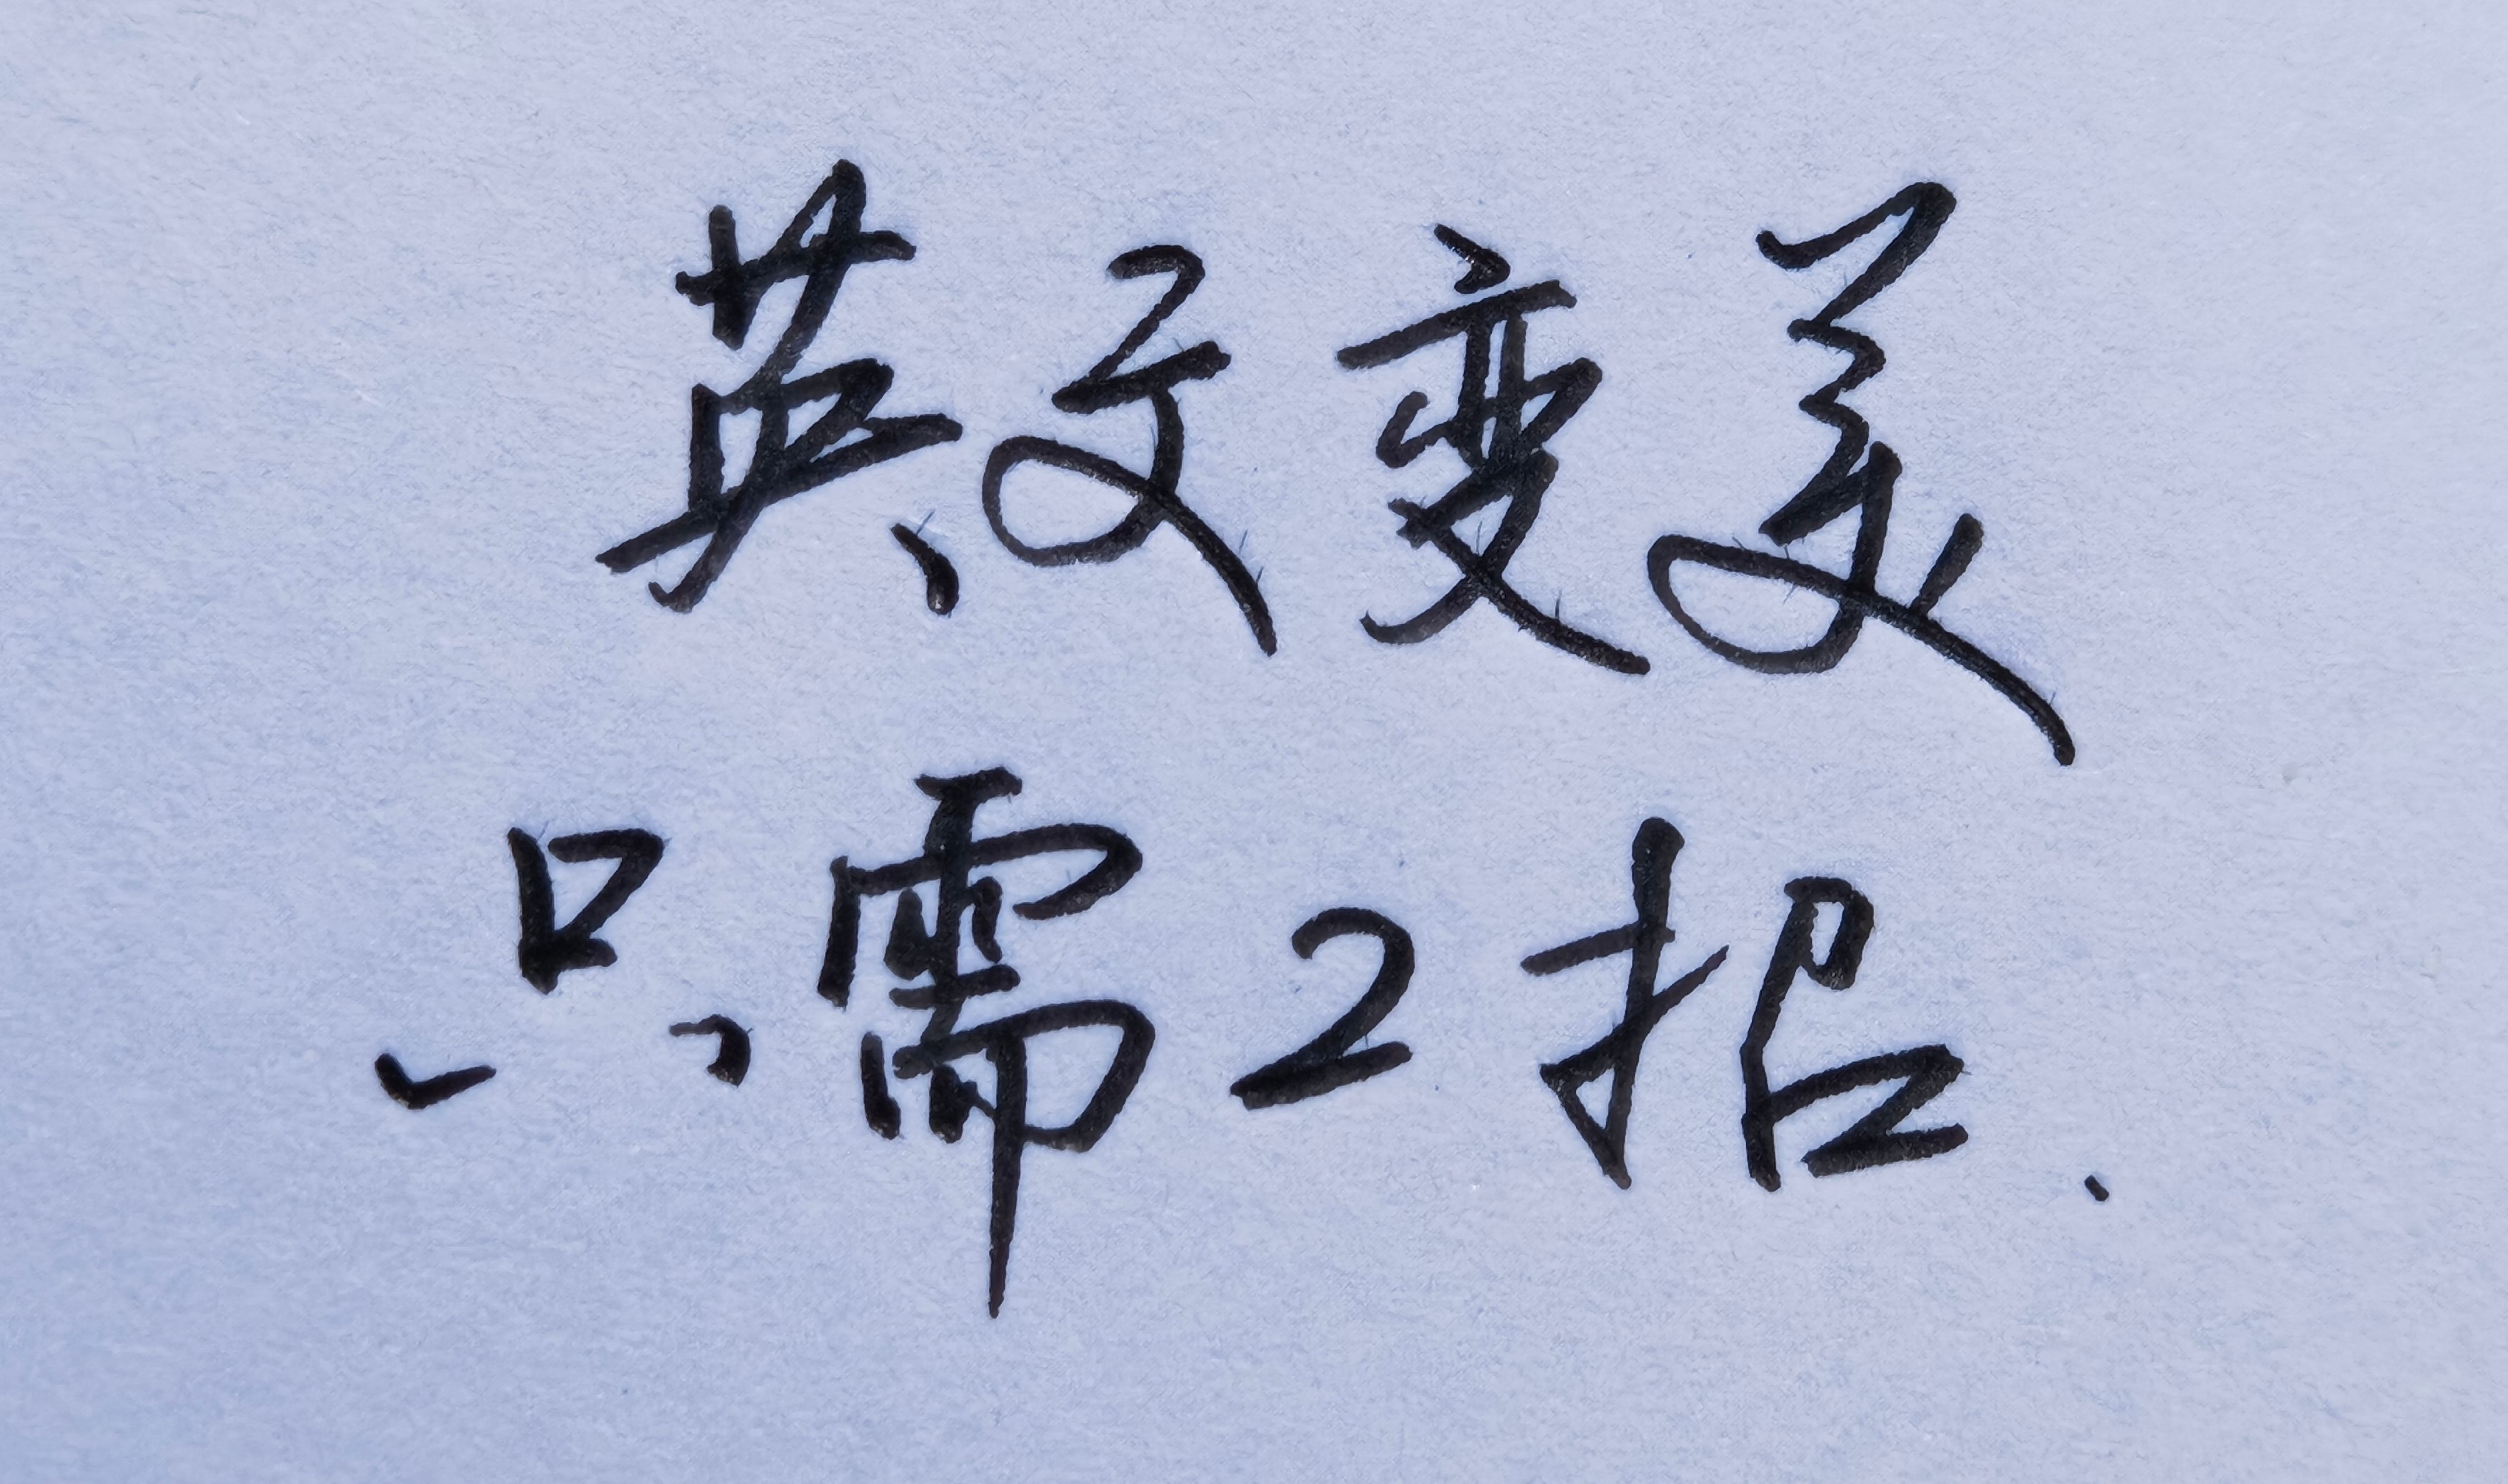 英文变美
只需2招.